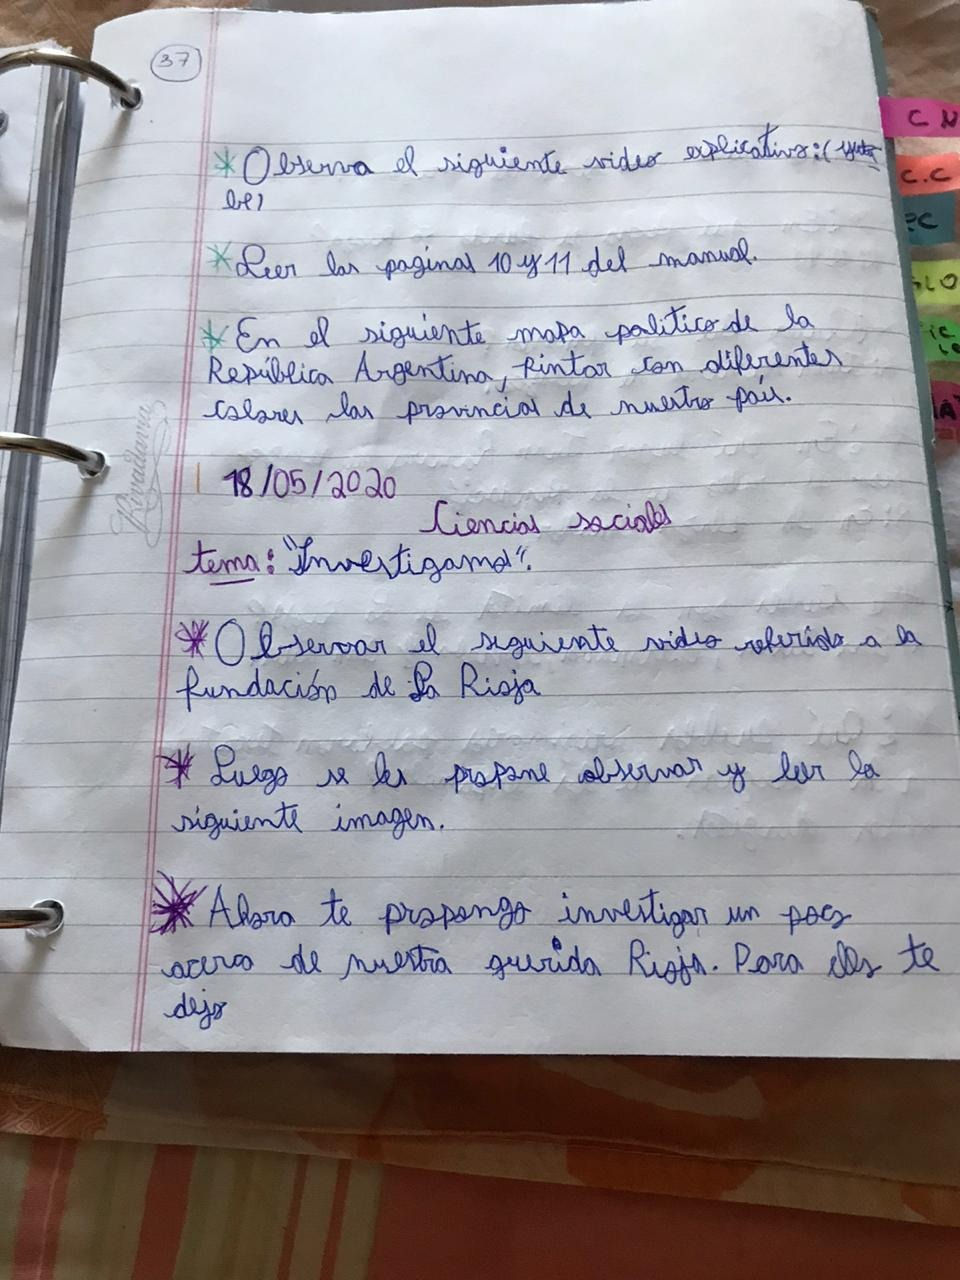 37
* Observa el siguiente video explicativo: (youtu
be)
* Leer las paginas 10 y 11 del manual.
* En el siguiente mapa politico de la
República Argentina, pintar con diferentes
colores las provincias de nuestro país.
18/05/2020
Ciencias sociales
tema: "Investigamos".
* Observar el siguiente video referido a la
fundación de La Rioja
* Luego se les propone observar y leer la
siguiente imagen.
* Ahora te propongo investigar un poco
acerca de nuestra querida Rioja. Para ello te
dejo
Rivadavia
C N
C.C